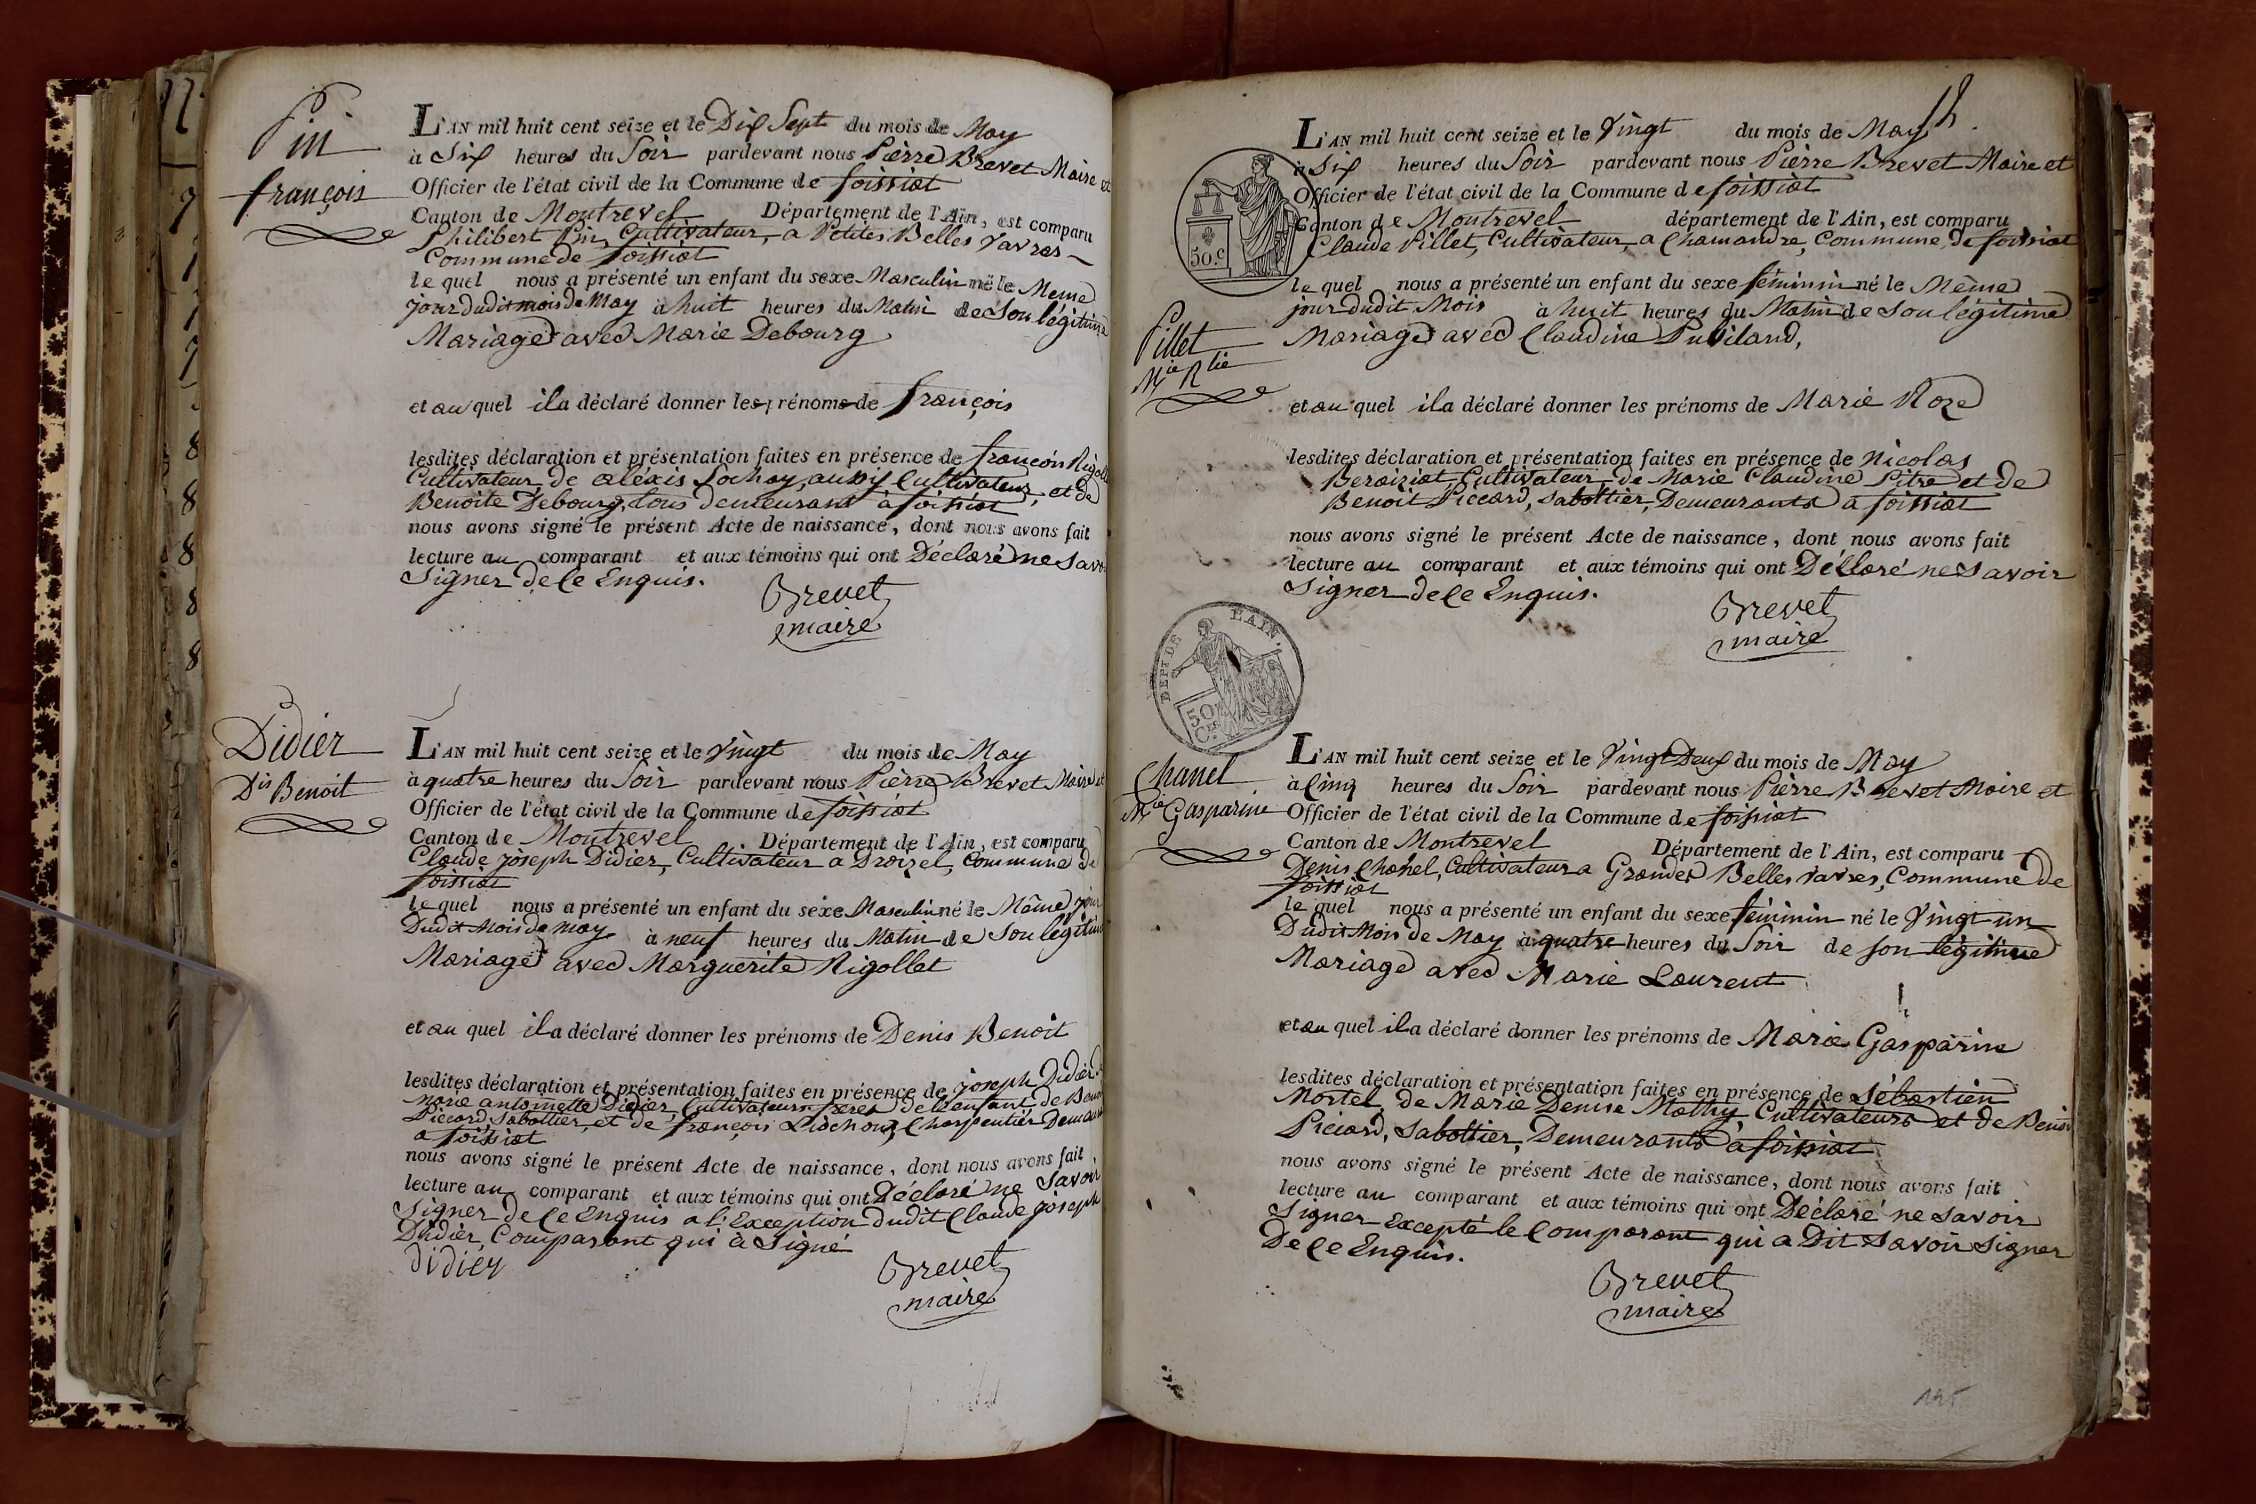 Pin
françois
L'AN mil huit cent seize et le Dix Sept du mois de May
à Six heures du Soir pardevant nous Pierre Brevet Maire et
Officier de l'état civil de la Commune de foissiat
Canton de Montrevel Département de l'Ain, est comparu
Philibert Pin, Cultivateur, a Petites Belles Vavres
Commune de foissiat
le quel nous a présenté un enfant du sexe Masculin né le Meme
jour dudit mois de May à huit heures du Matin de Son légitime
Mariage avec Marie Debourg
et au quel il a déclaré donner les prénoms de françois
lesdites déclaration et présentation faites en présence de françois
Cultivateur de aléxis Sochay, aussy Cultivateur, et de
Benoite Debourg, tous demeurant à foissiat
nous avons signé le présent Acte de naissance, dont nous avons fait
lecture au comparant et aux témoins qui ont Déclaré ne Savoir
Signer de Ce Enquis.
Brevet
maire
Didier
Dis Benoit
L'AN mil huit cent seize et le Vingt du mois de May
à quatre heures du Soir pardevant nous Pierre Brevet Maire et
Officier de l'état civil de la Commune de foissiat
Canton de Montrevel Département de l'Ain, est comparu
Claude joseph Didier, Cultivateur a Droizel, Commune de
foissiat
le quel nous a présenté un enfant du sexe Masculin né le Même jour
Dudit Mois de may à neuf heures du Matin de Son légitime
Mariage avec Marguerite Rigollet
et au quel il a déclaré donner les prénoms de Denis Benoit
lesdites déclaration et présentation faites en présence de joseph Didier
marie antoinette Didier, Cultivateurs freres de l'enfant de Benoit
Piccard, Sabottier, et de françois Charpentier
a foissiat
nous avons signé le présent Acte de naissance, dont nous avons fait
lecture au comparant et aux témoins qui ont Déclaré ne Savoir
Signer de Ce Enquis a l'Exception dudit Claude joseph
Didier, Comparant qui à Signé
didier
Brevet
maire
50.c
Pillet
Mie Rlie
L'AN mil huit cent seize et le Vingt du mois de May
à Six heures du Soir pardevant nous Pierre Brevet Maire et
Officier de l'état civil de la Commune de foissiat
Canton de Montrevel département de l'Ain, est comparu
Claude Pillet, Cultivateur, a Chamandre, Commune de foissiat
le quel nous a présenté un enfant du sexe féminin né le Même
jour dudit Mois à huit heures du Matin de Son légitime
Mariage avec Claudine Puvilland,
et au quel il a déclaré donner les prénoms de Marie Roze
lesdites déclaration et présentation faites en présence de Nicolas
Beraiziat, Cultivateur, de Marie Claudine Pitre et de
Benoit Piccard, Sabottier, Demeurants a foissiat
nous avons signé le présent Acte de naissance, dont nous avons fait
lecture au comparant et aux témoins qui ont Déclaré ne Savoir
Signer de Ce Enquis.
Brevet
maire
DEPT DE L'AIN.
50 Ces
Chanel
Mie Gasparine
L'AN mil huit cent seize et le Vingt Deux du mois de May
à Cinq heures du Soir pardevant nous Pierre Brevet Maire et
Officier de l'état civil de la Commune de foissiat
Canton de Montrevel Département de l'Ain, est comparu
Denis Chanel, Cultivateur a Grandes Belles Vavres, Commune de
foissiat
le quel nous a présenté un enfant du sexe féminin né le Vingt un
Dudit Mois de May à quatre heures du Soir de son légitime
Mariage avec Marie Laurent
et au quel il a déclaré donner les prénoms de Marie Gasparine
lesdites déclaration et présentation faites en présence de Sébastien
Mortel, de Marie Denise Mathy Cultivateurs et de Benoit
Piccard, Sabottier, Demeurants à foissiat
nous avons signé le présent Acte de naissance, dont nous avons fait
lecture au comparant et aux témoins qui ont Déclaré ne Savoir
Signer Excepté le Comparant qui a Dit Savoir Signer
De Ce Enquis.
Brevet
maire